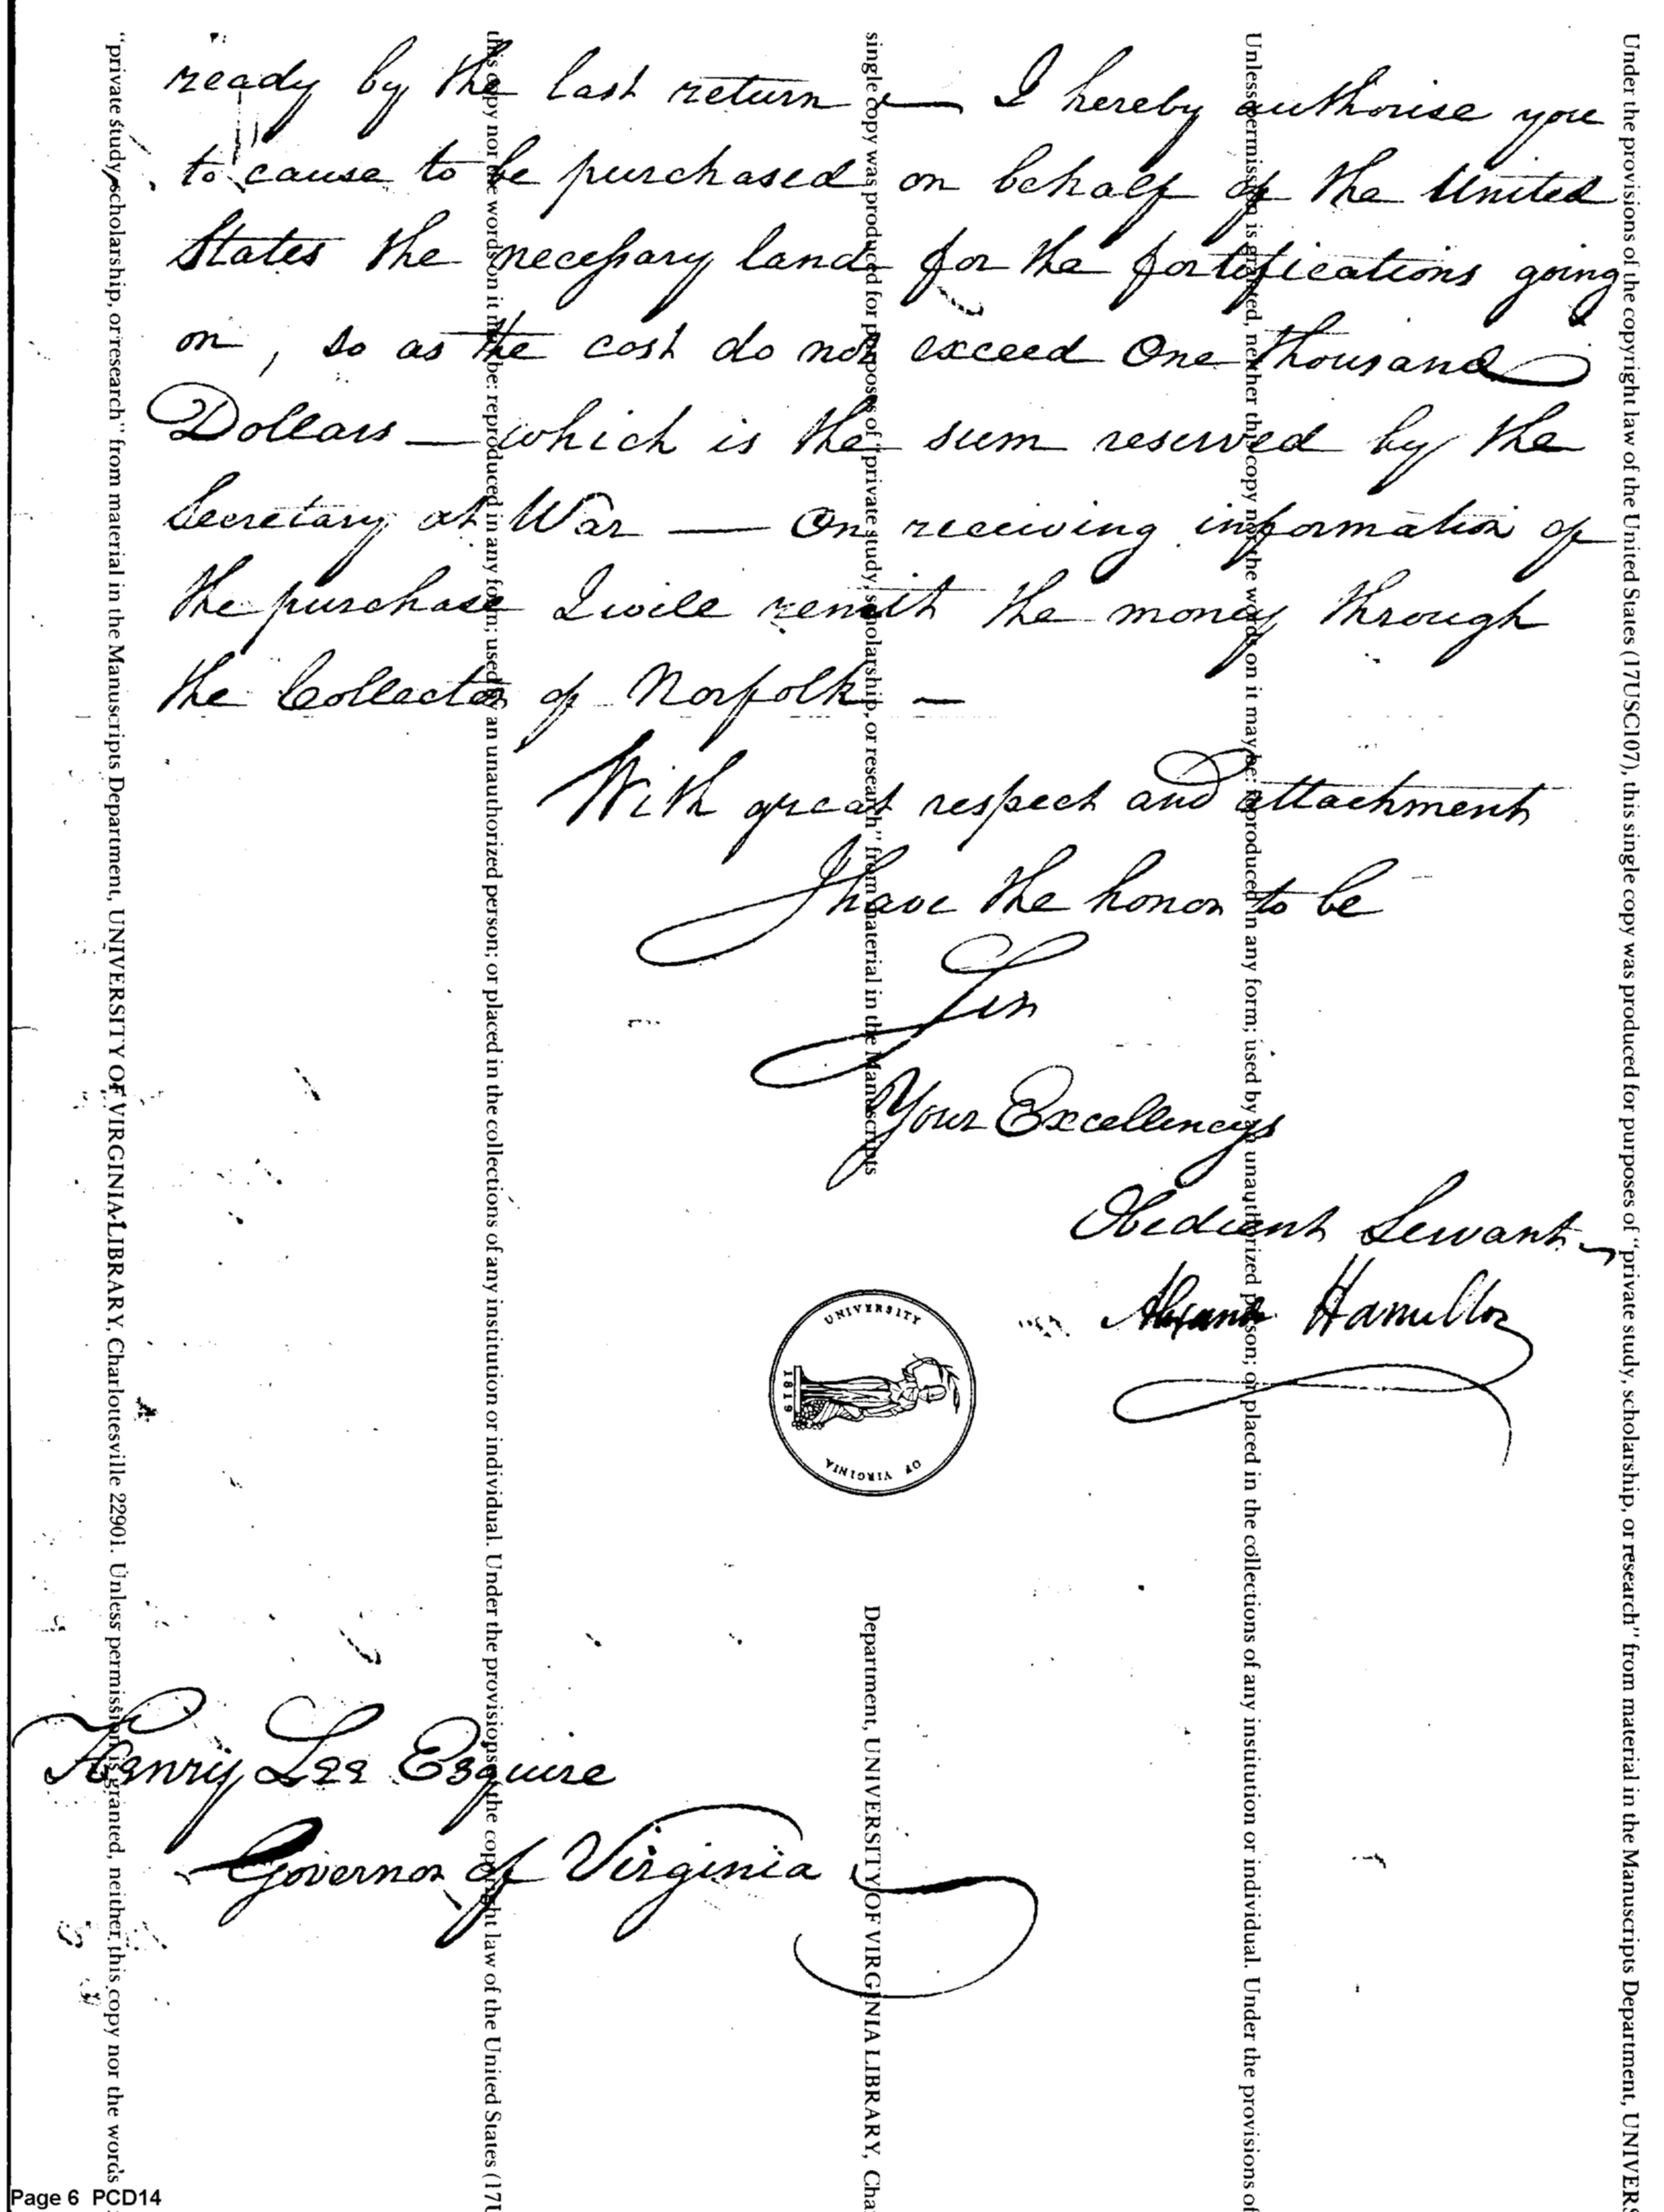 ready by the last return — I hereby authorise you
to cause to be purchased on behalf of the United
States the necessary land for the fortifications going
on, so as the cost do not exceed One thousand
Dollars — which is the sum reserved by the
Secretary at War — On receiving information of
the purchase I will remit the money through
the Collector of Norfolk —
With great respect and attachment
I have the honor to be
Sir
Your Excellencys
Obedient Servant
Alexand Hamilton
UNIVERSITY
1819
OF VIRGINIA
Henry Lee Esquire
Governor of Virginia
Under the provisions of the copyright law of the United States (17USC107), this single copy was produced for purposes of "private study, scholarship, or research" from material in the Manuscripts Department, UNIVERS
Unless permission is granted, neither this copy nor the words on it may be: reproduced in any form; used by an unauthorized person; or placed in the collections of any institution or individual. Under the provisions of
single copy was produced for purposes of "private study, scholarship, or research" from material in the Manuscripts
Department, UNIVERSITY OF VIRGINIA LIBRARY, Cha
this copy nor the words on it may be: reproduced in any form; used by an unauthorized person; or placed in the collections of any institution or individual. Under the provisions of the copyright law of the United States (17U
"private study, scholarship, or research" from material in the Manuscripts Department, UNIVERSITY OF VIRGINIA LIBRARY, Charlottesville 22901. Unless permission is granted, neither this copy nor the words
Page 6 PCD14